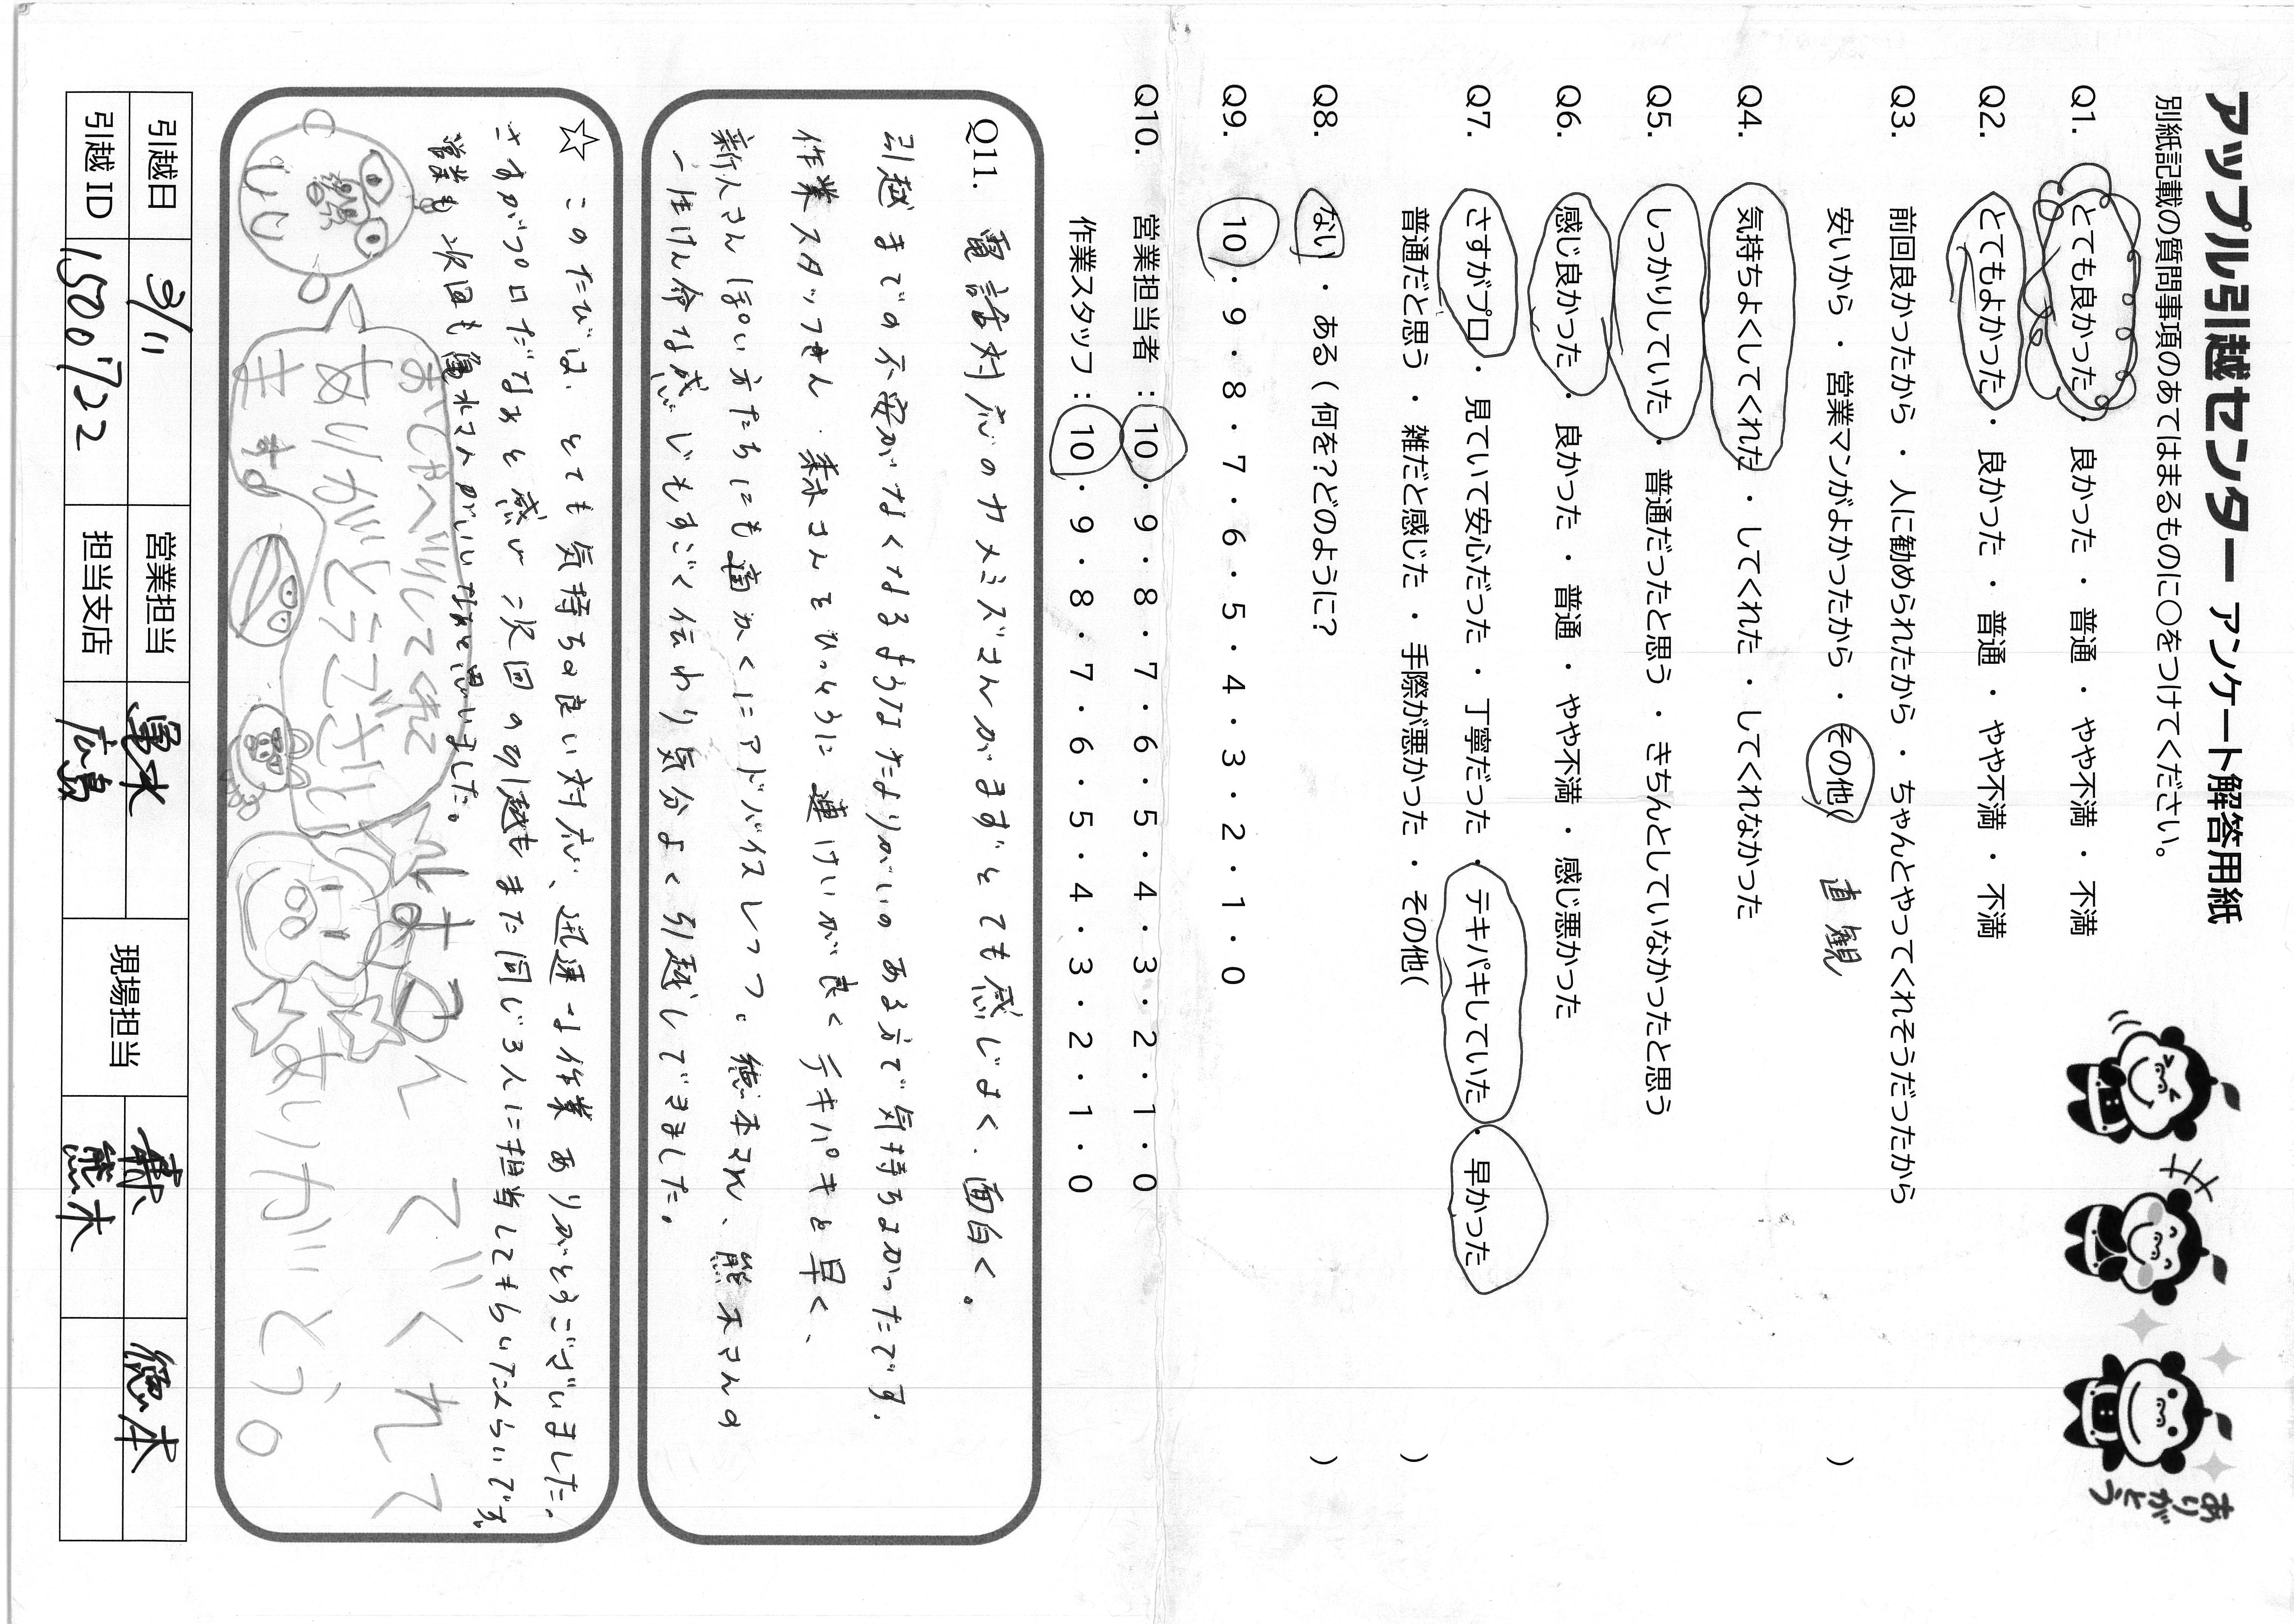 アップル引越センター アンケート解答用紙
別紙記載の質問事項のあてはまるものに〇をつけてください。
Q1. とても良かった ・ 良かった ・ 普通 ・ やや不満 ・ 不満
Q2. とてもよかった ・ 良かった ・ 普通 ・ やや不満 ・ 不満
Q3. 前回良かったから ・ 人に勧められたから ・ ちゃんとやってくれそうだったから
安いから ・ 営業マンがよかったから ・ その他( 直観 )
Q4. 気持ちよくしてくれた ・ してくれた ・ してくれなかった
Q5. しっかりしていた ・ 普通だったと思う ・ きちんとしていなかったと思う
Q6. 感じ良かった ・ 良かった ・ 普通 ・ やや不満 ・ 感じ悪かった
Q7. さすがプロ ・ 見ていて安心だった ・ 丁寧だった ・ テキパキしていた ・ 早かった
普通だと思う ・ 雑だと感じた ・ 手際が悪かった ・ その他( )
Q8. ない ・ ある ( 何を?どのように? )
Q9. 10 ・ 9 ・ 8 ・ 7 ・ 6 ・ 5 ・ 4 ・ 3 ・ 2 ・ 1 ・ 0
Q10. 営業担当者 : 10 ・ 9 ・ 8 ・ 7 ・ 6 ・ 5 ・ 4 ・ 3 ・ 2 ・ 1 ・ 0
作業スタッフ : 10 ・ 9 ・ 8 ・ 7 ・ 6 ・ 5 ・ 4 ・ 3 ・ 2 ・ 1 ・ 0
Q11. 電話対応のカメミズさんがまずとても感じよく、面白く。
引越までの不安がなくなるようなたよりがいのある方で気持ちよかったです。
作業スタッフさん 森さんをひっとうに連けいが良く テキパキと早く、
新人さんぽい方たちにも 細かくにアドバイスしつつ。徳本さん、熊本さんの
一生けん命な感じもすごく伝わり気分よく引越しできました。
☆ このたびは、とても気持ちの良い対応、迅速な作業 ありがとうございました。
さすがプロだなぁと感じ 次回の引越もまた同じ3人に担当してもらいたいくらいです。
営業も次回も亀水さんがいいなぁと思いました。
おしゃべりしてくれて
ありがとうござい
ます
はこんでくれて
ありがとう。
ありがとう
引越日 3/11 営業担当 亀水 現場担当 森 徳本
引越ID 1500722 担当支店 広島 熊本